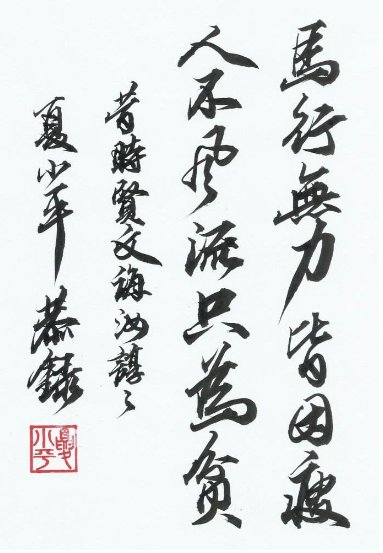 馬行無力皆因瘦
人不風流只為貧
昔時賢文誨汝諄〻
夏小平恭錄
夏小平